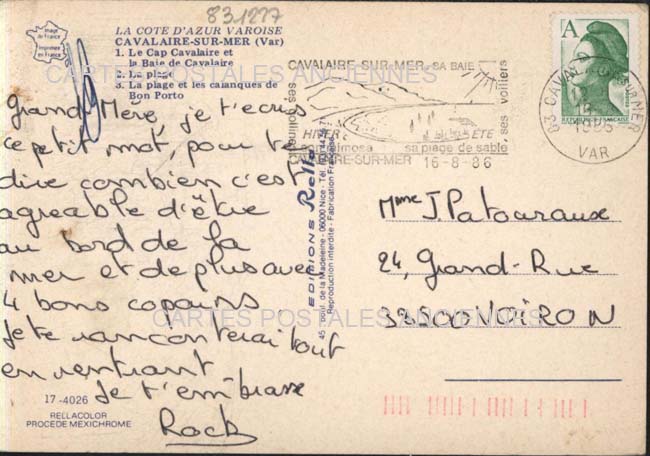 831277
Image de France
Imprimerie de France
LA COTE D'AZUR VAROISE
CAVALAIRE-SUR-MER (Var)
1. Le Cap Cavalaire et
la Baie de Cavalaire
2. La plage
3. La plage et les calanques de
Bon Porto
CARTES POSTALES ANCIENNES
Grand Mère, je t'ecris
ce petit mot, pour te
dire combien c'est
agreable d'être
au bord de la
mer et de plus avec
4 bons copains
je te raconterai tout
en rentrant
Je t'embrasse
Rock
17-4026
RELLACOLOR
PROCEDE MEXICHROME
EDITIONS Rella
45 boul. de la Madeleine - 06000 Nice - Tél.
Reproduction interdite - Fabrication Française
CAVALAIRE-SUR-MER SA BAIE
ses collines
ses voiliers
HIVER ETE
son mimosa sa plage de sable
CAVALAIRE-SUR-MER 16-8-86
A
REPUBLIQUE FRANCAISE
83 CAVALAIRE SUR MER
VAR
Mme J. Patouraux
24, Grand-Rue
38500 VOIRON
CARTES POSTALES ANCIENNES